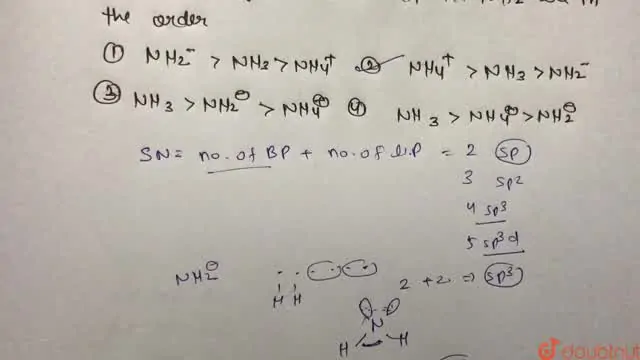 the order
① NH2⁻ > NH3 > NH4⁺ ② NH4⁺ > NH3 > NH2⁻
③ NH3 > NH2⊖ > NH4⊕ ④ NH3 > NH4⊕ > NH2⊖
SN = no. of BP + no. of L.P = 2 sp
3 sp2
4 sp3
5 sp3d
NH2⊖ 2 + 2 ⇒ sp3
H H
N
H H
doubtnut